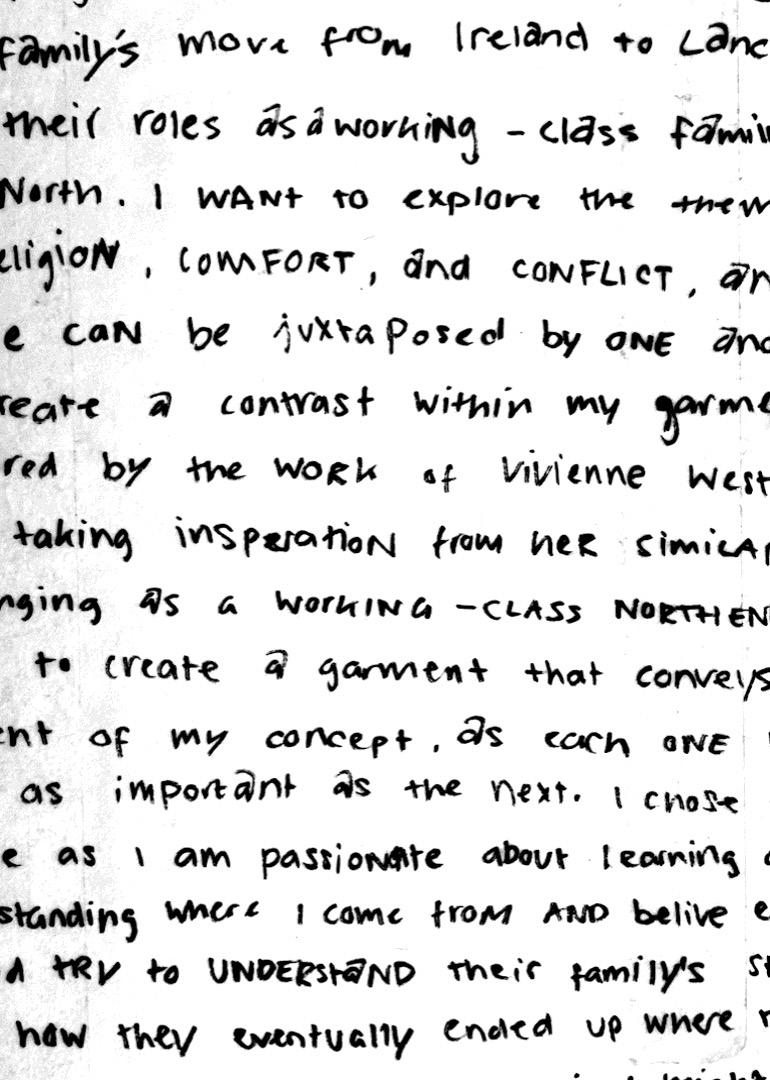 family's move from Ireland to Lanc
their roles as a working - class famil
North. I WANt to explore the them
eligioN, COMFORT, and CONFLICT, an
e caN be juxtaposed by ONE and
reate a contrast within my garme
red by the WORK of Vivienne West
taking insperatioN from heR similAr
nging as a WORKING - CLASS NORTHEN
to create a garment that conveys
ent of my concept, as each ONE
as important as the next. I chose
e as I am passioNate about learning
standing where I come from AND belive e
d tRy to UNDERStaND their family's st
how they eventually ended up where